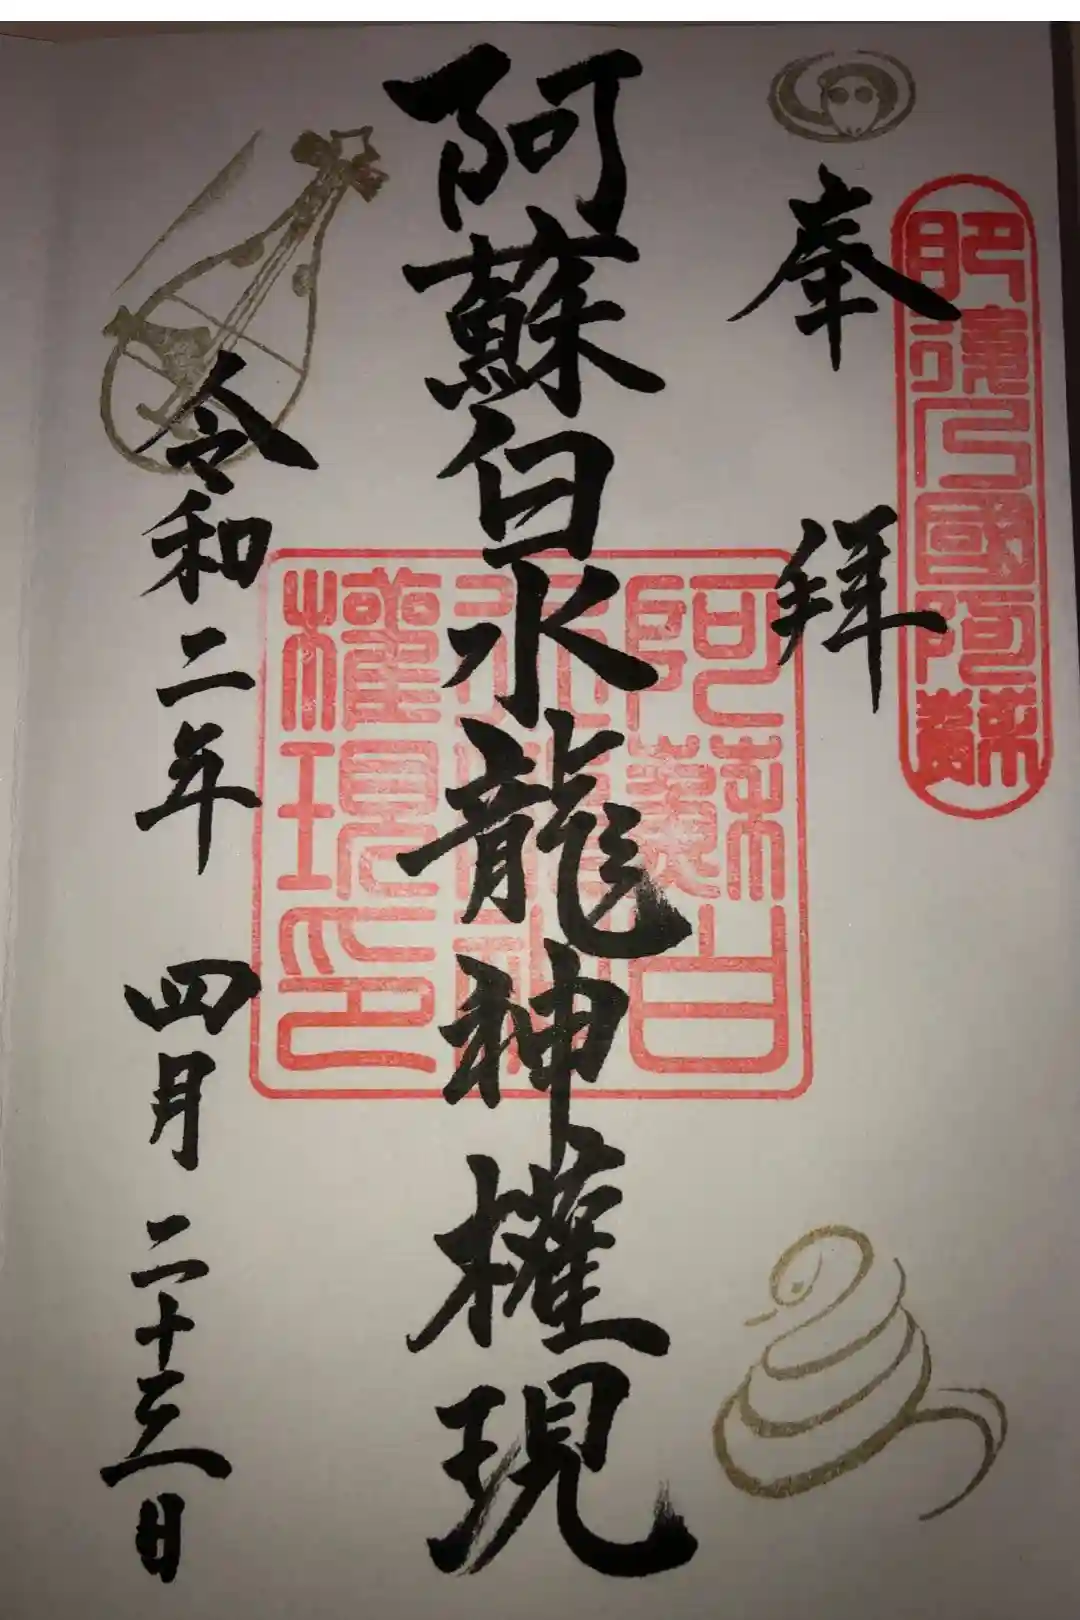 肥後乃國阿蘇
奉拝
阿蘇白水龍神權現
阿蘇白
水龍神
權現印
令和二年四月二十三日